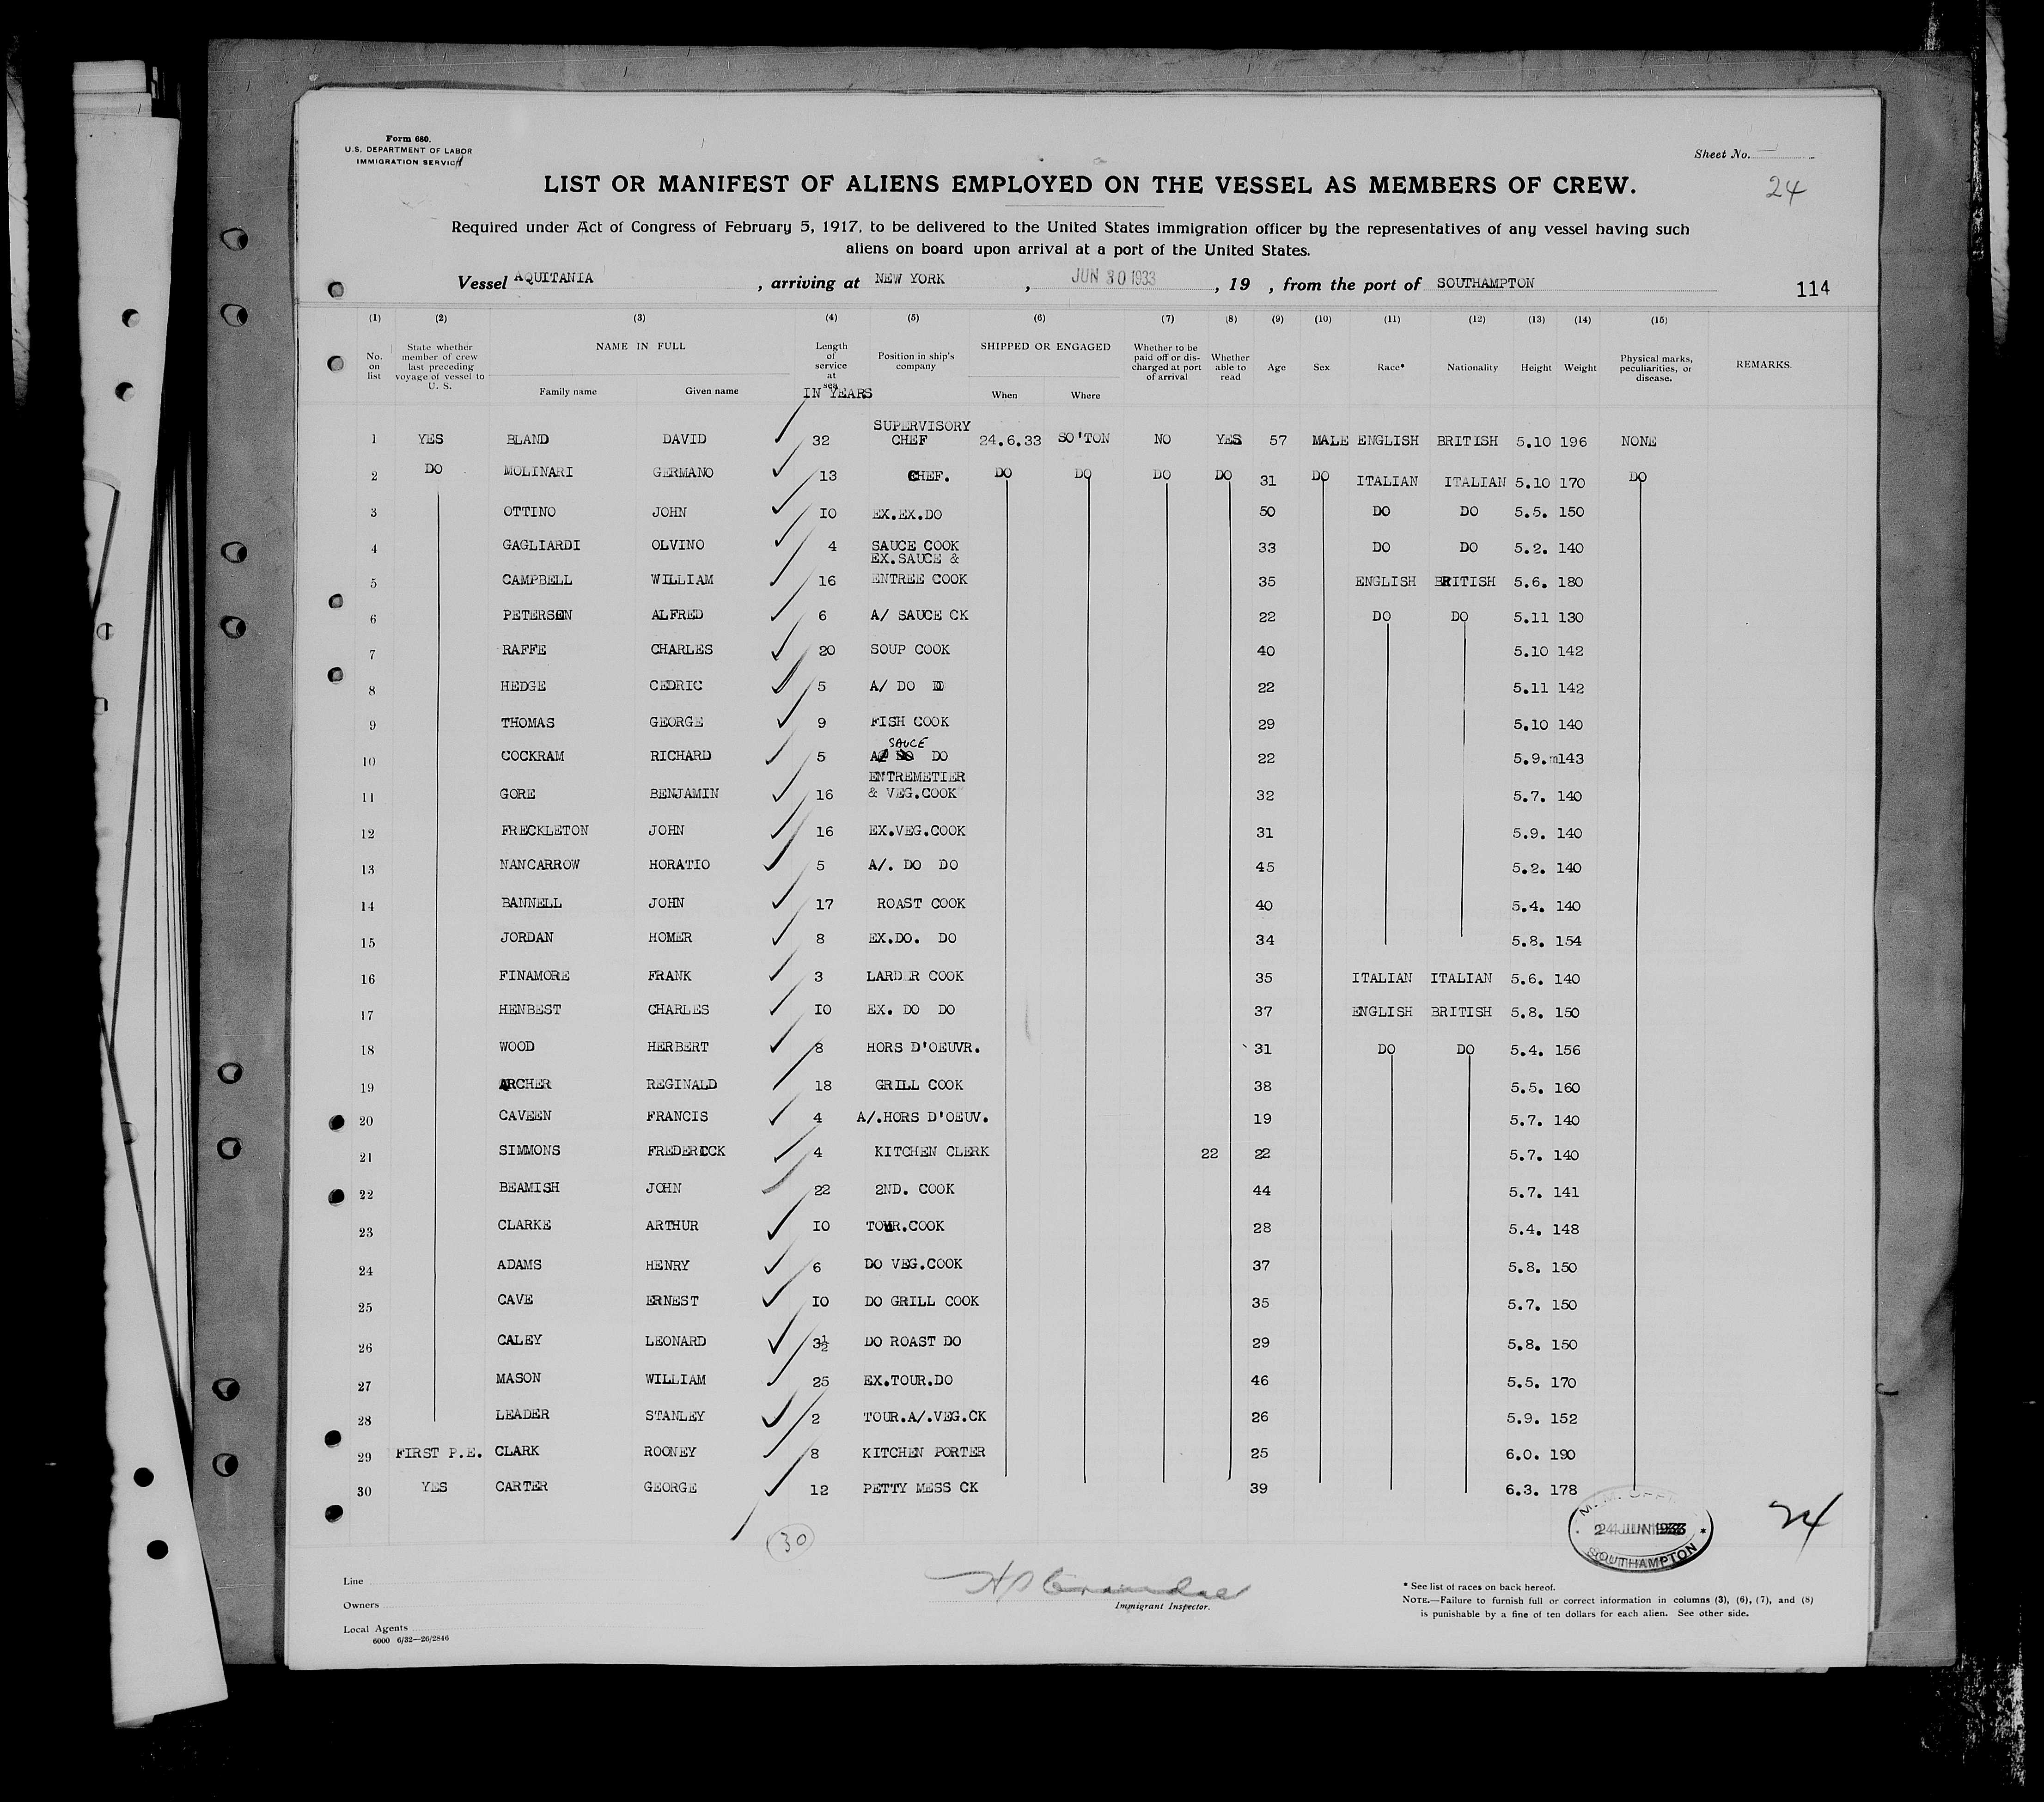 Form 680.
U.S. DEPARTMENT OF LABOR
IMMIGRATION SERVICE
Sheet No.
24
LIST OR MANIFEST OF ALIENS EMPLOYED ON THE VESSEL AS MEMBERS OF CREW.
Required under Act of Congress of February 5, 1917, to be delivered to the United States immigration officer by the representatives of any vessel having such
aliens on board upon arrival at a port of the United States.
Vessel AQUITANIA , arriving at NEW YORK , JUN 30 1933 , 19 , from the port of SOUTHAMPTON
114
(1) (2) (3) (4) (5) (6) (7) (8) (9) (10) (11) (12) (13) (14) (15)
No. on list State whether member of crew last preceding voyage of vessel to U. S. NAME IN FULL Family name Given name Length of service at sea IN YEARS Position in ship's company SHIPPED OR ENGAGED When Where Whether to be paid off or discharged at port of arrival Whether able to read Age Sex Race* Nationality Height Weight Physical marks, peculiarities, or disease. REMARKS.
1 YES BLAND DAVID 32 SUPERVISORY CHEF 24.6.33 SO'TON NO YES 57 MALE ENGLISH BRITISH 5.10 196 NONE
2 DO MOLINARI GERMANO 13 CHEF. DO DO DO DO 31 DO ITALIAN ITALIAN 5.10 170 DO
3 OTTINO JOHN IO EX.EX.DO 50 DO DO 5.5. 150
4 GAGLIARDI OLVINO 4 SAUCE COOK 33 DO DO 5.2. 140
5 CAMPBELL WILLIAM 16 EX.SAUCE & ENTREE COOK 35 ENGLISH BRITISH 5.6. 180
6 PETERSEN ALFRED 6 A/ SAUCE CK 22 DO DO 5.11 130
7 RAFFE CHARLES 20 SOUP COOK 40 5.10 142
8 HEDGE CEDRIC 5 A/ DO 22 5.11 142
9 THOMAS GEORGE 9 FISH COOK 29 5.10 140
10 COCKRAM RICHARD 5 A/ SAUCE DO 22 5.9. 143
11 GORE BENJAMIN 16 ENTREMETIER & VEG.COOK 32 5.7. 140
12 FRECKLETON JOHN 16 EX.VEG.COOK 31 5.9. 140
13 NANCARROW HORATIO 5 A/. DO DO 45 5.2. 140
14 BANNELL JOHN 17 ROAST COOK 40 5.4. 140
15 JORDAN HOMER 8 EX.DO. DO 34 5.8. 154
16 FINAMORE FRANK 3 LARDER COOK 35 ITALIAN ITALIAN 5.6. 140
17 HENBEST CHARLES IO EX. DO DO 37 ENGLISH BRITISH 5.8. 150
18 WOOD HERBERT 8 HORS D'OEUVR. 31 DO DO 5.4. 156
19 ARCHER REGINALD 18 GRILL COOK 38 5.5. 160
20 CAVEEN FRANCIS 4 A/.HORS D'OEUV. 19 5.7. 140
21 SIMMONS FREDERICK 4 KITCHEN CLERK 22 22 5.7. 140
22 BEAMISH JOHN 22 2ND. COOK 44 5.7. 141
23 CLARKE ARTHUR IO TOUR.COOK 28 5.4. 148
24 ADAMS HENRY 6 DO VEG.COOK 37 5.8. 150
25 CAVE ERNEST IO DO GRILL COOK 35 5.7. 150
26 CALEY LEONARD 3½ DO ROAST DO 29 5.8. 150
27 MASON WILLIAM 25 EX.TOUR.DO 46 5.5. 170
28 LEADER STANLEY 2 TOUR.A/.VEG.CK 26 5.9. 152
29 FIRST P.E. CLARK ROONEY 8 KITCHEN PORTER 25 6.0. 190
30 YES CARTER GEORGE 12 PETTY MESS CK 39 6.3. 178
30
24 JUN 1933
SOUTHAMPTON
24
Line
Owners
Local Agents
6000 6/32—26/2846
Immigrant Inspector.
* See list of races on back hereof.
NOTE.—Failure to furnish full or correct information in columns (3), (6), (7), and (8)
is punishable by a fine of ten dollars for each alien. See other side.